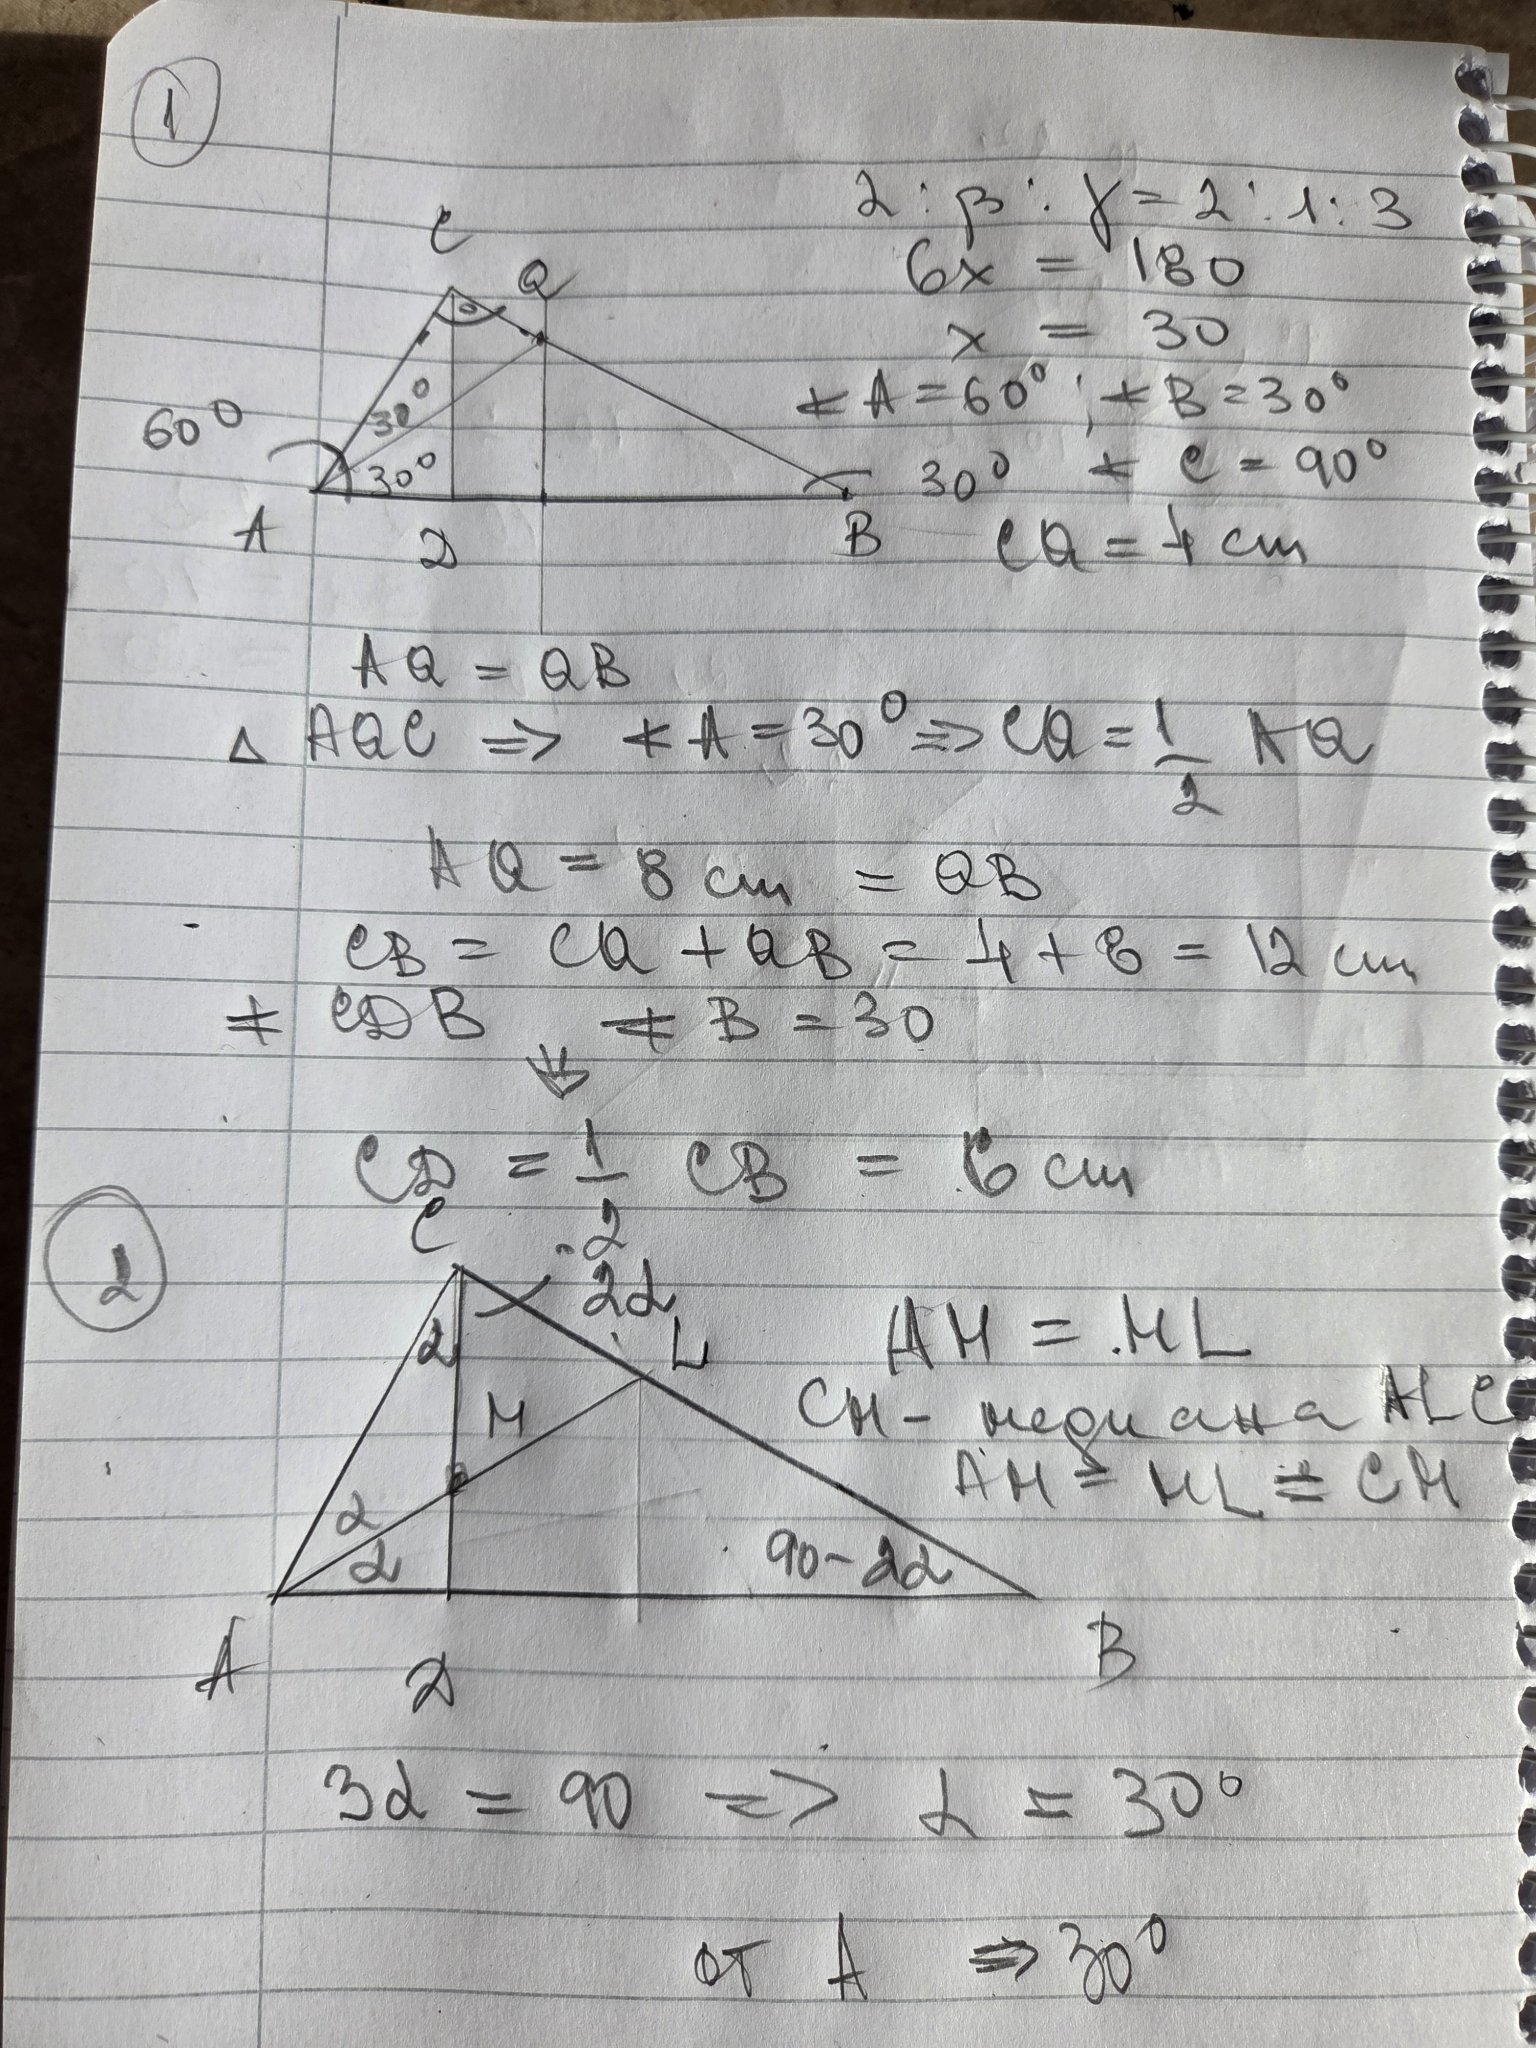 1
α : β : γ = 2 : 1 : 3
6x = 180
x = 30
∢ A = 60° ; ∢ B = 30°
∢ C = 90°
CQ = 4 cm
C Q
60° 30°
30° 30°
A D B
AQ = QB
△ AQC => ∢ A = 30° => CQ = 1/2 AQ
AQ = 8 cm = QB
CB = CQ + QB = 4 + 8 = 12 cm
∢ CDB ∢ B = 30
⇓
CD = 1/2 CB = 6 cm
2
C 2α
α L
M
α
α 90 - 2α
A D B
AM = ML
CM - медиана ALC
AM = ML = CM
3α = 90 => α = 30°
от A => 30°